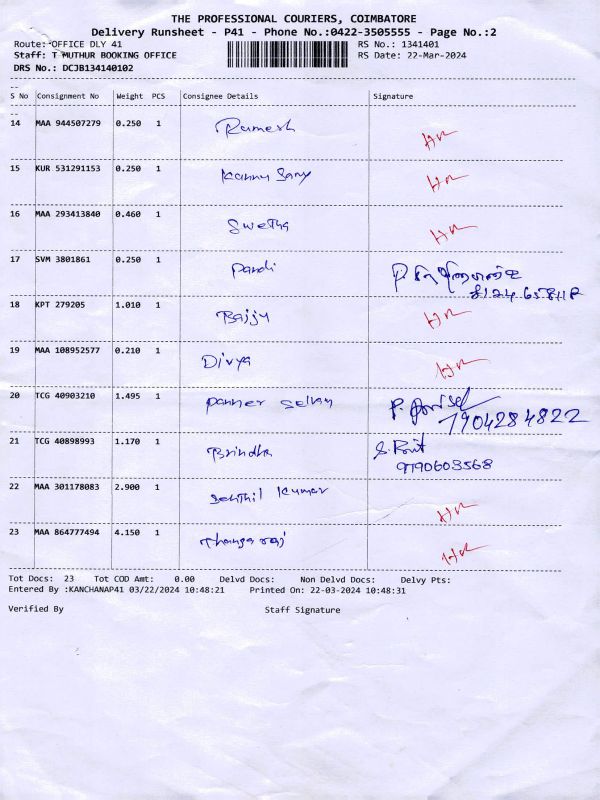 THE PROFESSIONAL COURIERS, COIMBATORE
Delivery Runsheet - P41 - Phone No.:0422-3505555 - Page No.:2
Route: OFFICE DLY 41 RS No.: 1341401
Staff: T MUTHUR BOOKING OFFICE RS Date: 22-Mar-2024
DRS No.: DCJB134140102
S No Consignment No Weight PCS Consignee Details Signature
14 MAA 944507279 0.250 1 Ramesh
15 KUR 531291153 0.250 1 Kannu Samy
16 MAA 293413840 0.460 1 Swetha
17 SVM 3801861 0.250 1 Pandi
18 KPT 279205 1.010 1 Bajju
19 MAA 108952577 0.210 1 Divya
20 TCG 40903210 1.495 1 Panner Selvam
7904284822
21 TCG 40898993 1.170 1 Brindha
9790603568
22 MAA 301178083 2.900 1 Senthil Kumar
23 MAA 864777494 4.150 1 Thangaraj
Tot Docs: 23 Tot COD Amt: 0.00 Delvd Docs: Non Delvd Docs: Delvy Pts:
Entered By :KANCHANAP41 03/22/2024 10:48:21 Printed On: 22-03-2024 10:48:31
Verified By Staff Signature